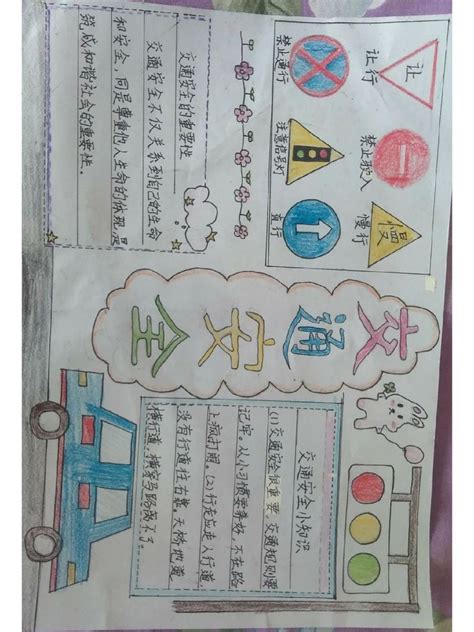 让
让行
禁止驶入
慢
慢行
禁止通行
注意信号灯
直行
交通安全的重要性
交通安全不仅关系到自己的生命
和安全，同是尊重他人生命的体现，是
筑成和谐社会的重要性。
交通安全
交通安全小知识
(1)交通安全很重要，交通规则要
记牢。从小习惯要养好，不在路
上疯打闹。(2)行走应走人行道，
没有行道往右靠，天桥地道
横行道，横穿马路离不了。